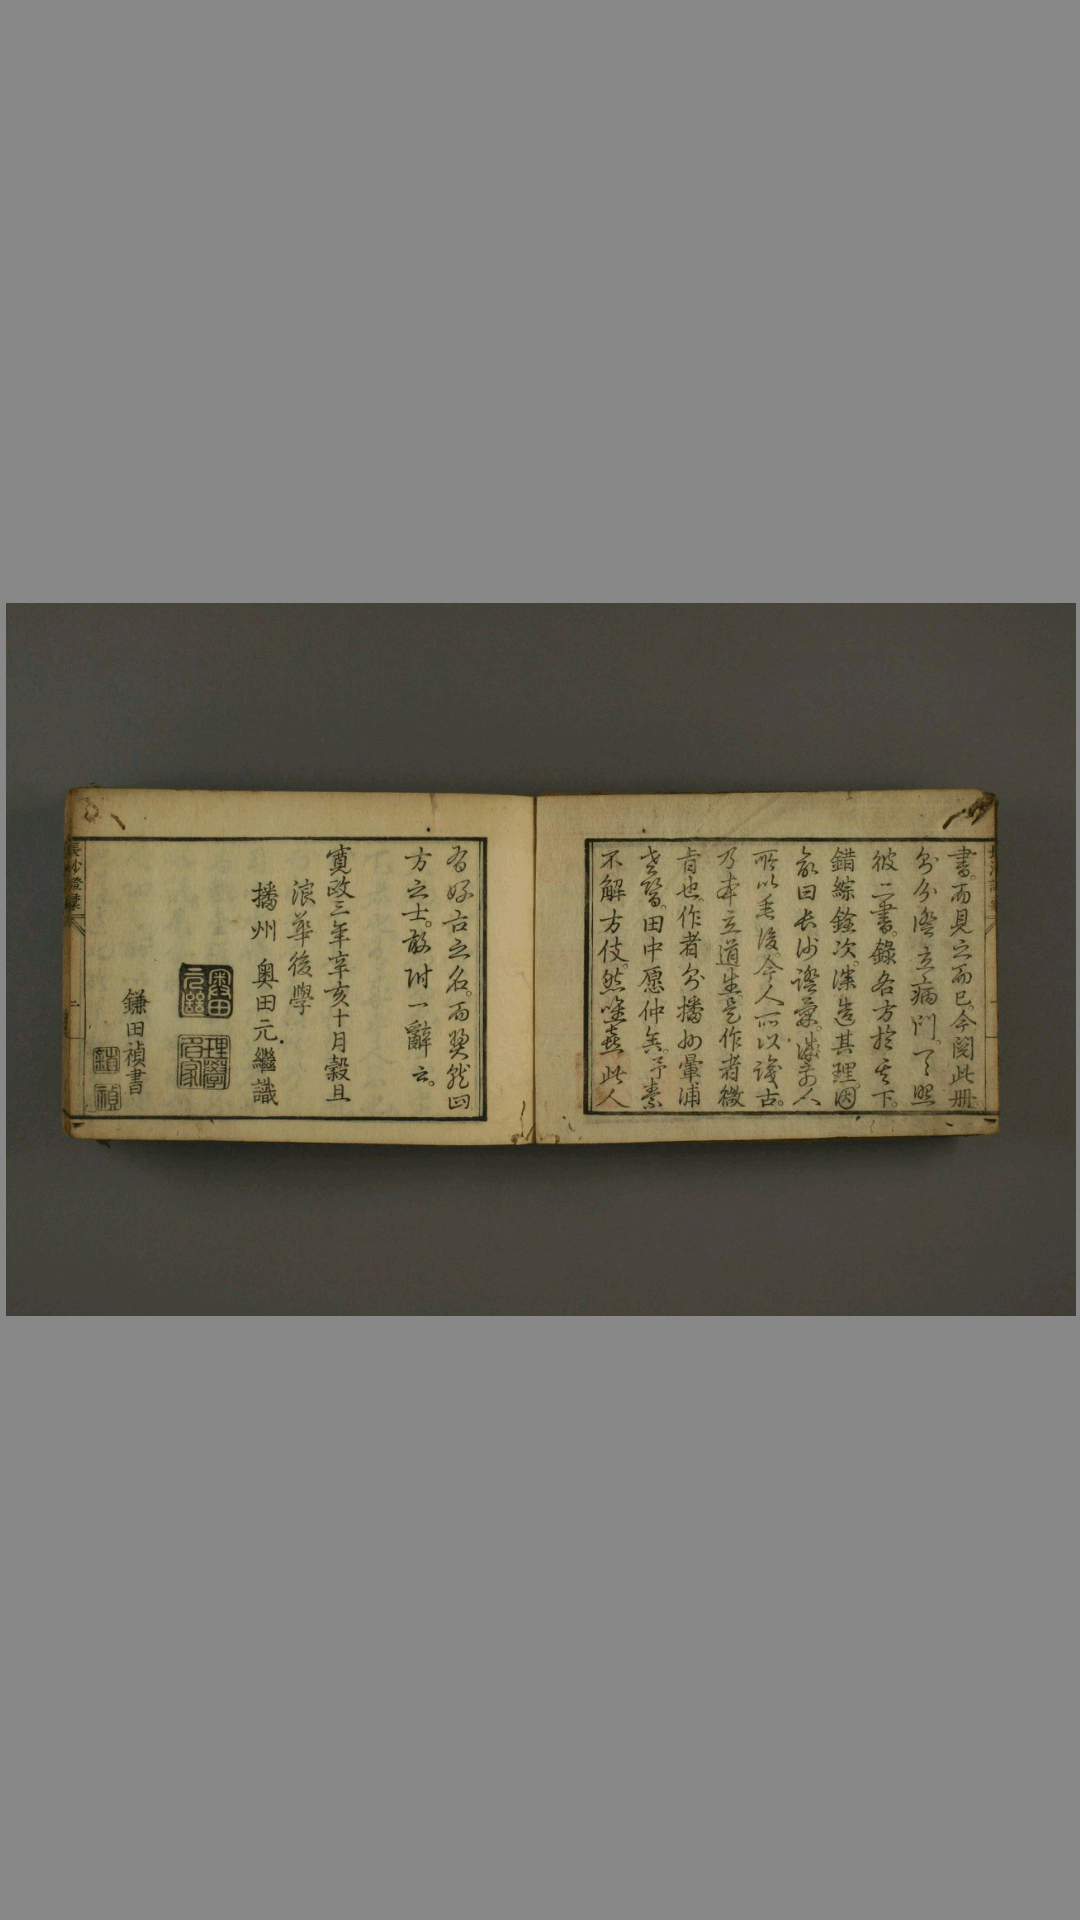 書。而見之而已。今閱此册。
分證立病門。
彼二書。錄各方於其下。
錯綜銓次。深造其理。因
長沙證彙。
所以垂後。今人所以識古。
乃本立道生。是作者微
旨也。作者播州暈浦
老醫。田中愿仲矣。予素
不解方伎。然唯喜此人
有好古之名。而奬然四
方之士。故附一辭云。
寛政三年辛亥十月穀旦
浪華後學
播州 奥田元繼識
奧田元繼
理學名家
鎌田禎書
長沙證彙